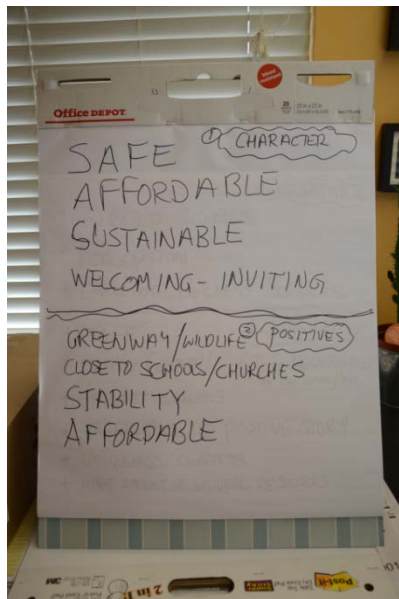 Office DEPOT
① CHARACTER
SAFE
AFFORDABLE
SUSTAINABLE
WELCOMING - INVITING
GREENWAY/WILDLIFE ② POSITIVES
CLOSE TO SCHOOLS/CHURCHES
STABILITY
AFFORDABLE
Post-it
2 in 1
3M